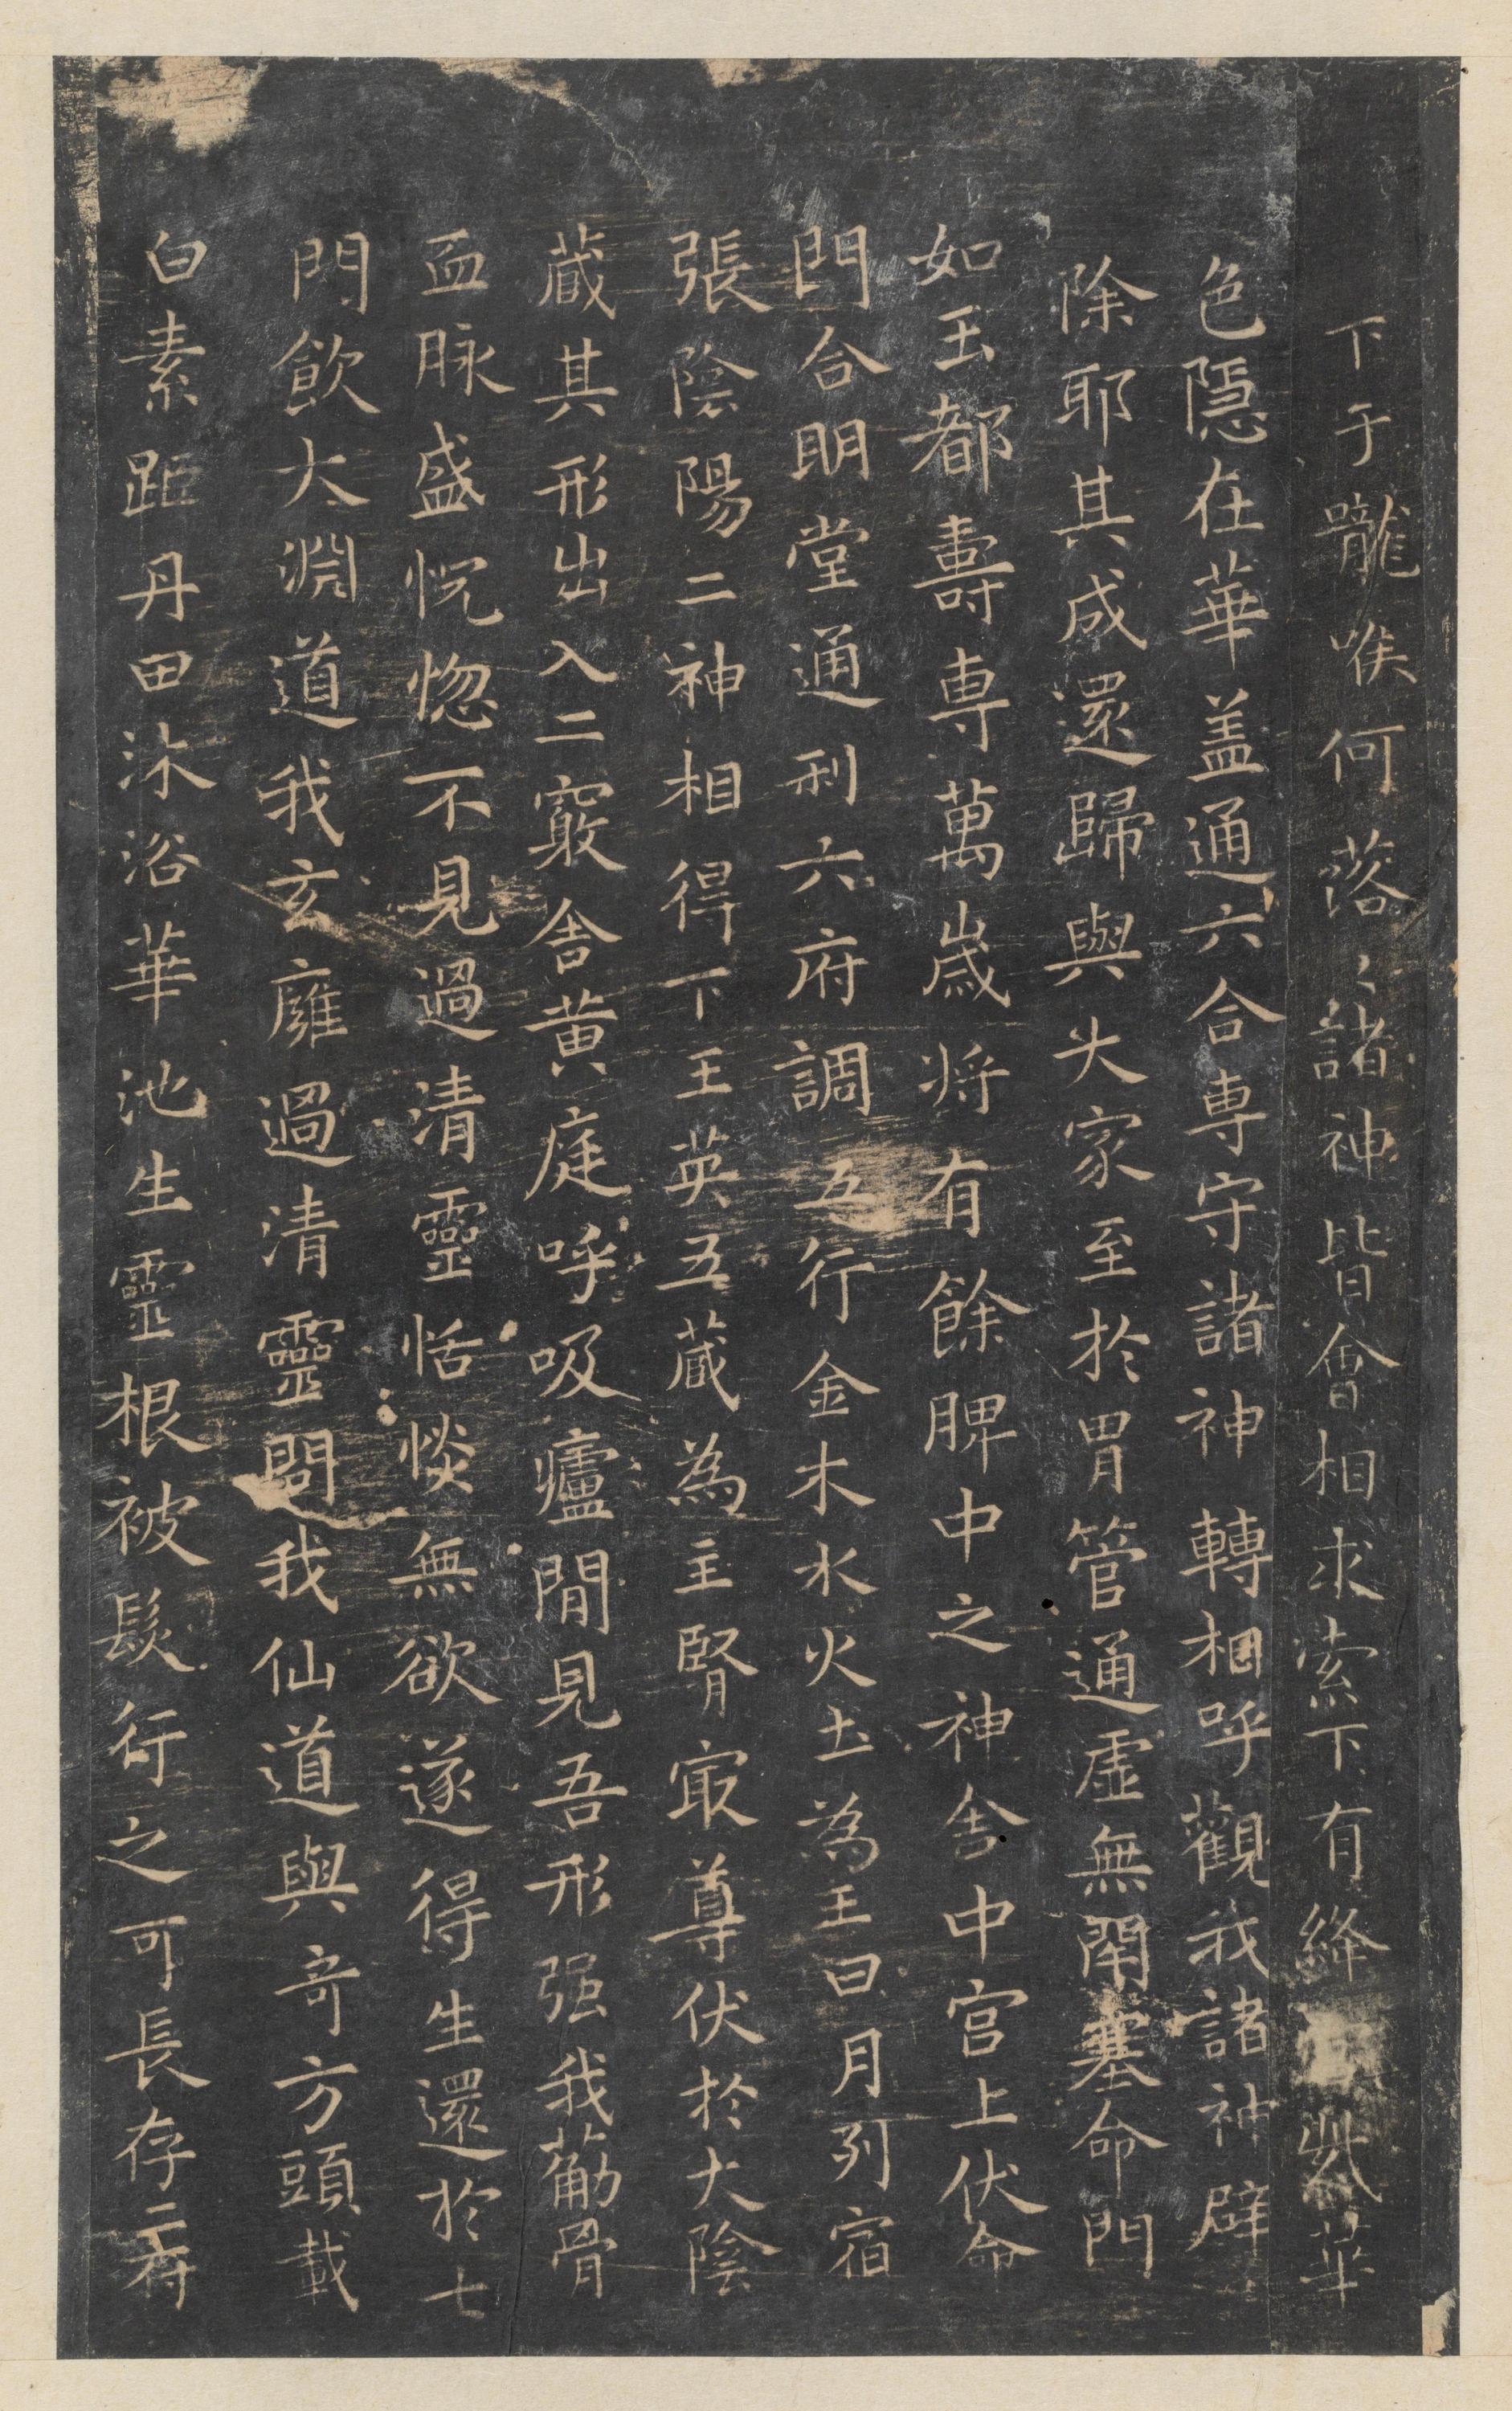 下于嚨喉何落〻諸神皆會相求索下有絳紫華
色隱在華盖通六合專守諸神轉相呼觀我諸神辟
除耶其成還歸與大家至於胃管通虛無閉塞命門
如玉都壽專萬歲将有餘脾中之神舍中宮上伏命
門合明堂通利六府調五行金木水火土為王日月列宿
張陰陽二神相得下玉英五藏為主腎㝡尊伏於大陰
藏其形出入二竅舍黄庭呼吸廬間見吾形强我葪骨
血脉盛怳惚不見過清靈恬惔無欲遂得生還於七
門飲大淵道我玄廱過清靈問我仙道與奇方頭載
白素距丹田沐浴華池生靈根被髮行之可長存二府